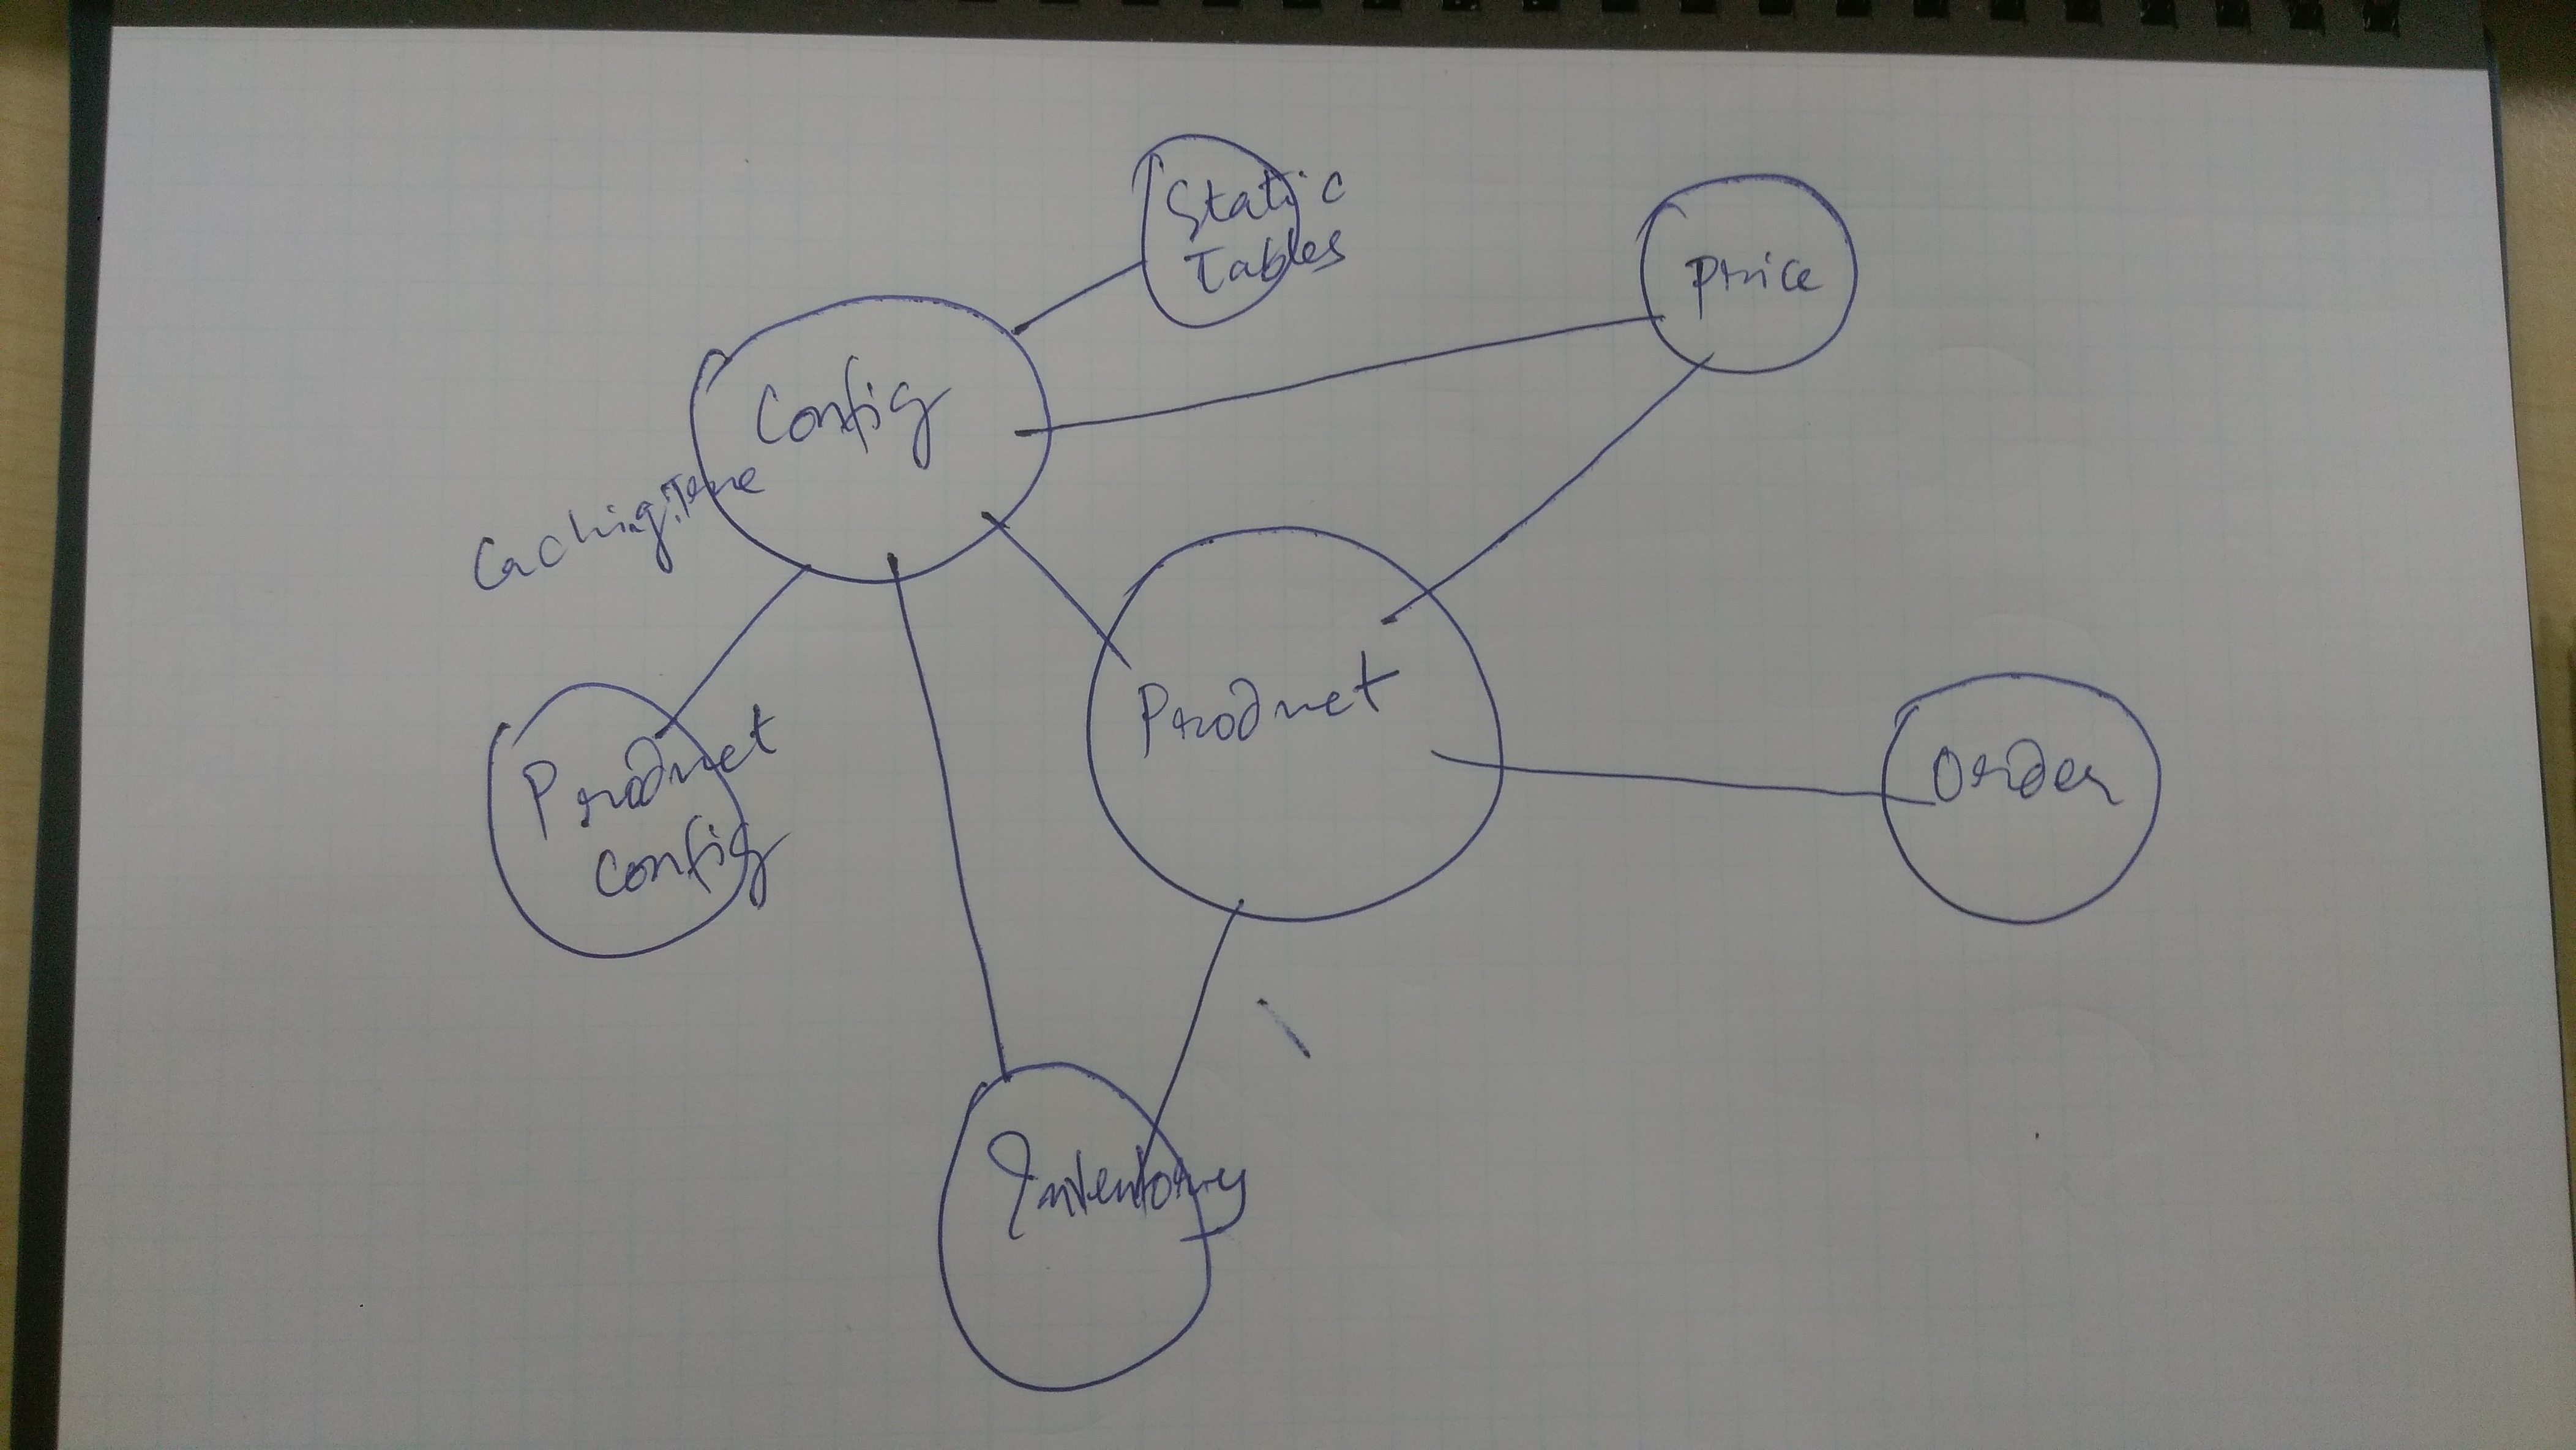 Static
Tables
Price
Config
Caching
Product
Product
Config
Order
Inventory